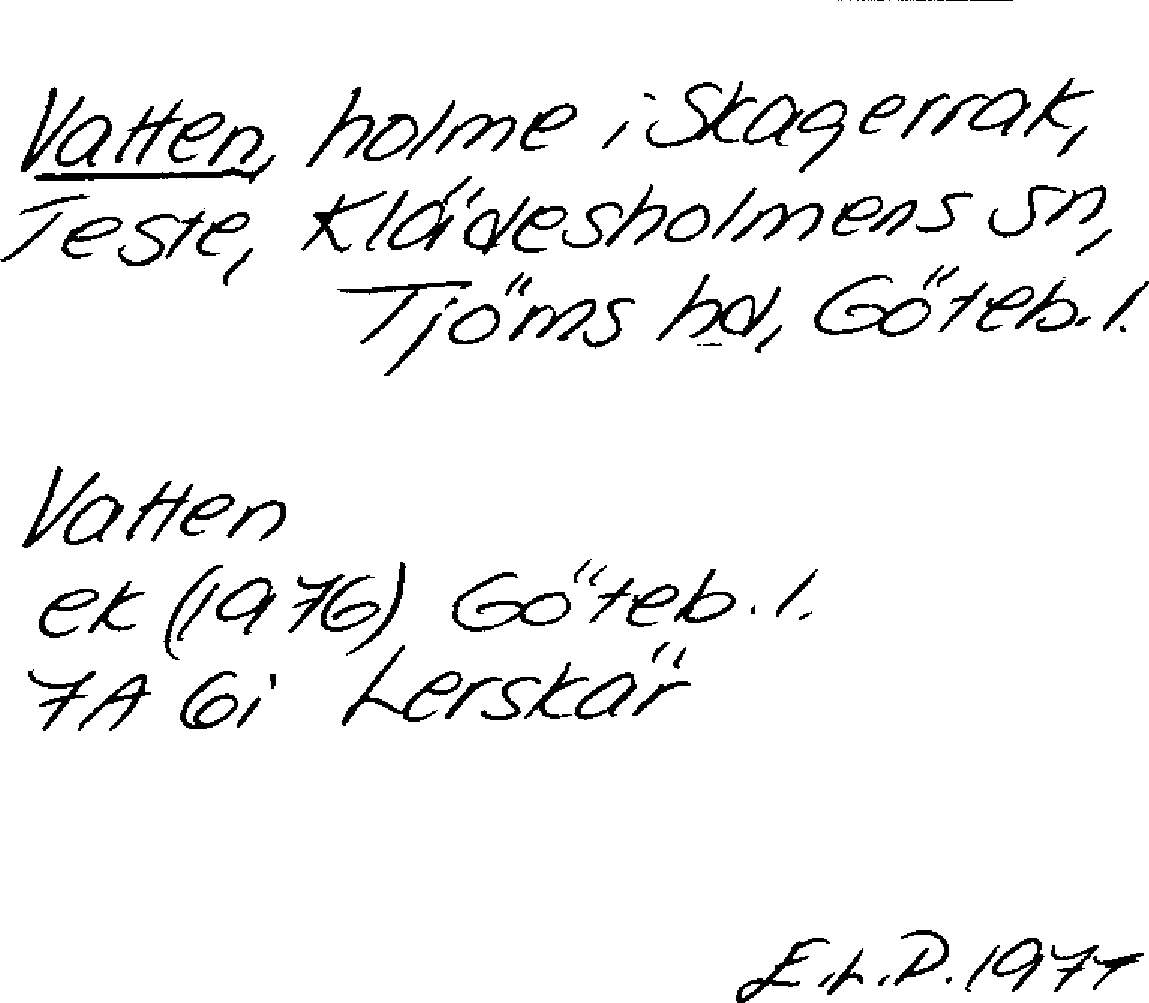 Vatten, holme i Skagerrak,
Teste, Klädesholmens sn,
Tjöms hd, Göteb. l.
Vatten
ek (1976) Göteb. l.
7A 6i Lerskär
E.L.D. 1977